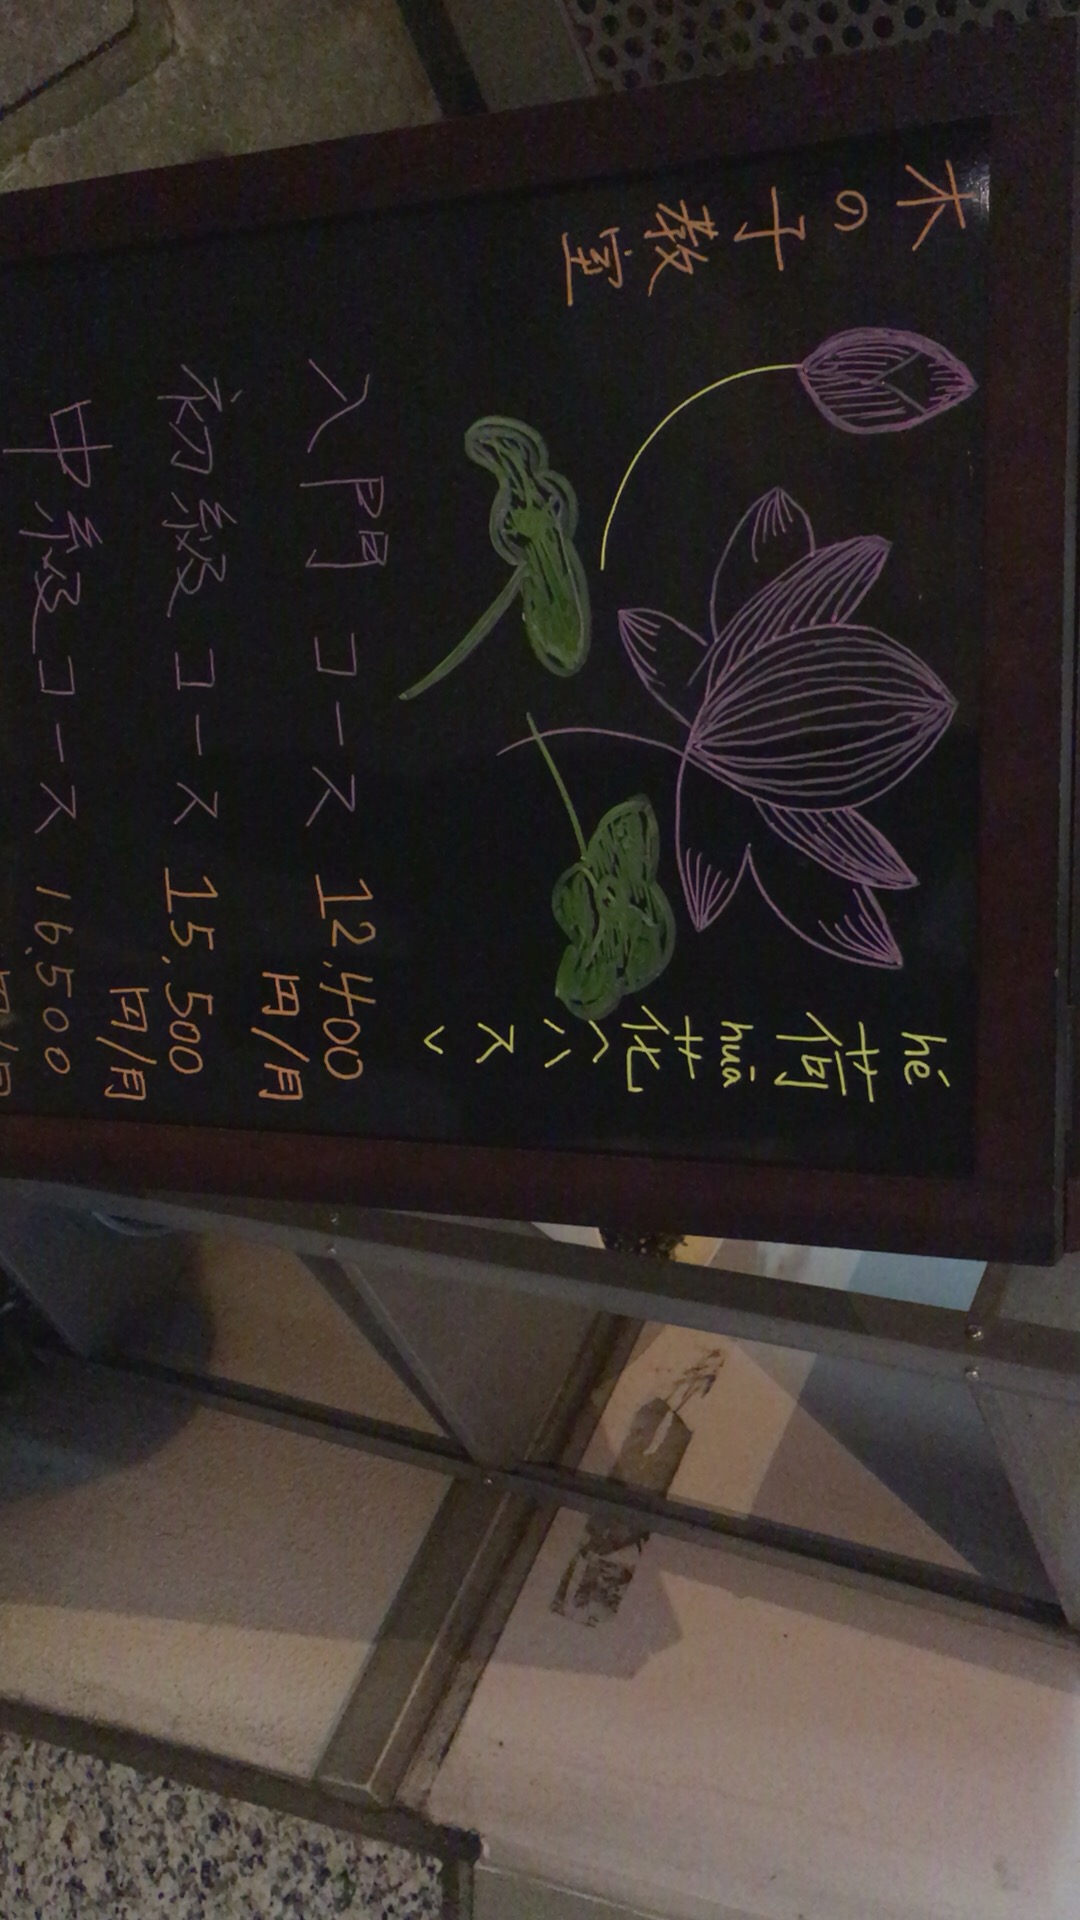 木の子教室
hé
荷
huā
花
〈ハス〉
入門コース 12,400
円/月
初級コース 15,500
円/月
中級コース 16,500
円/月